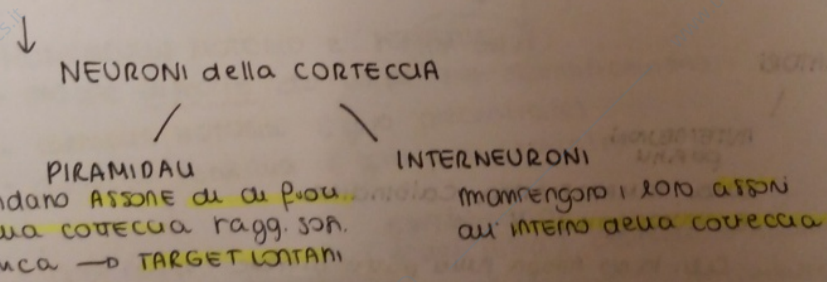 NEURONI della CORTECCIA
PIRAMIDALI
INTERNEURONI
ndano ASSONE di di fuori
lla CORTECCIA ragg. sost.
nca → TARGET LONTANI
mantengono i loro assoni
all' INTERNO della corteccia